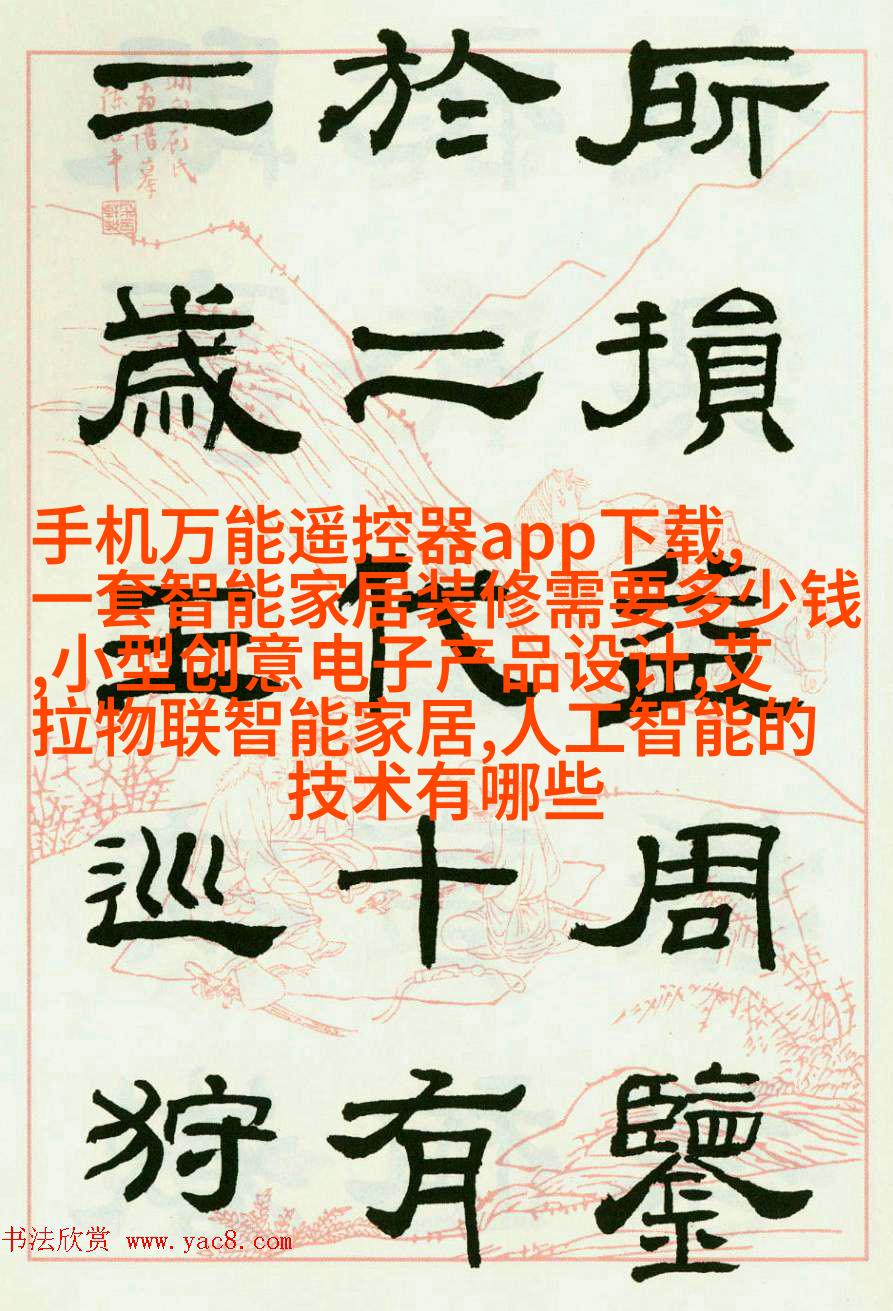 所損益周鑒
於二代十有
二歲王巡狩
手机万能遥控器app下载,
一套智能家居装修需要多少钱
,小型创意电子产品设计,艾
拉物联智能家居,人工智能的
技术有哪些
书法欣赏 www.yac8.com